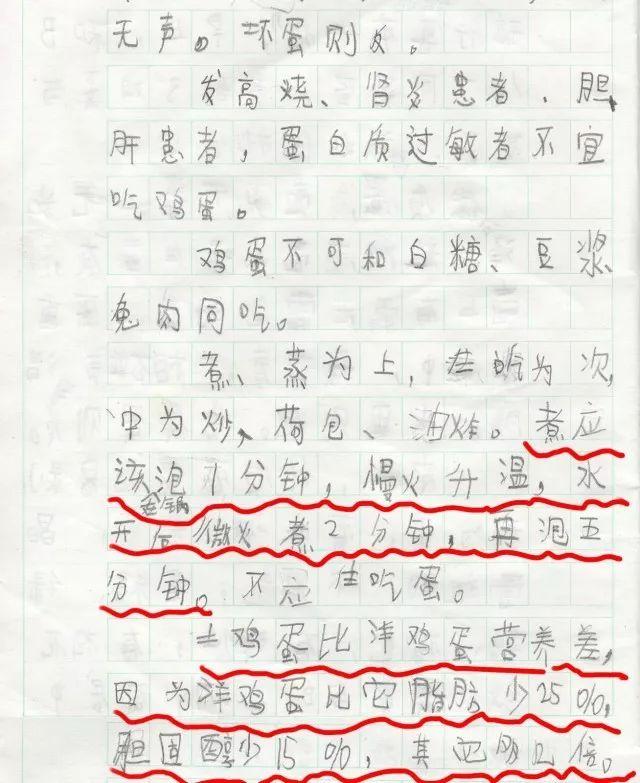 无声。坏蛋则反。
发高烧、肾炎患者、胆
肝患者，蛋白质过敏者不宜
吃鸡蛋。
鸡蛋不可和白糖、豆浆、
兔肉同吃。
煮、蒸为上，为次，
中为炒，荷包、油炸。煮应
该泡1分钟，慢火升温，水
开后微火煮2分钟，再泡五
分钟。不应吃蛋。
土鸡蛋比洋鸡蛋营养差，
因为洋鸡蛋比它脂肪少25%，
胆固醇少15%，其倍。